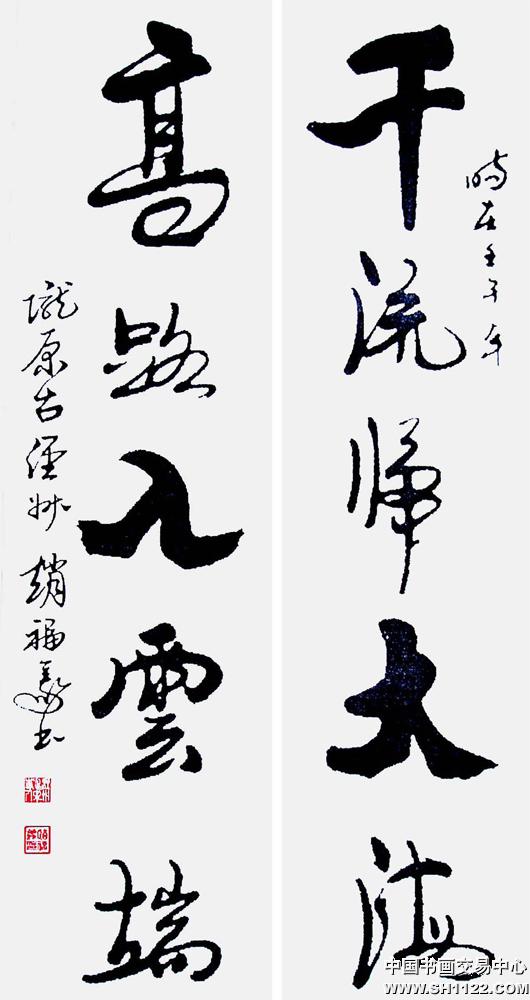 千流歸大海
時在壬午年
高路入雲端
隴原古涇州 趙福書
中国书画交易中心
WWW.SH1122.COM